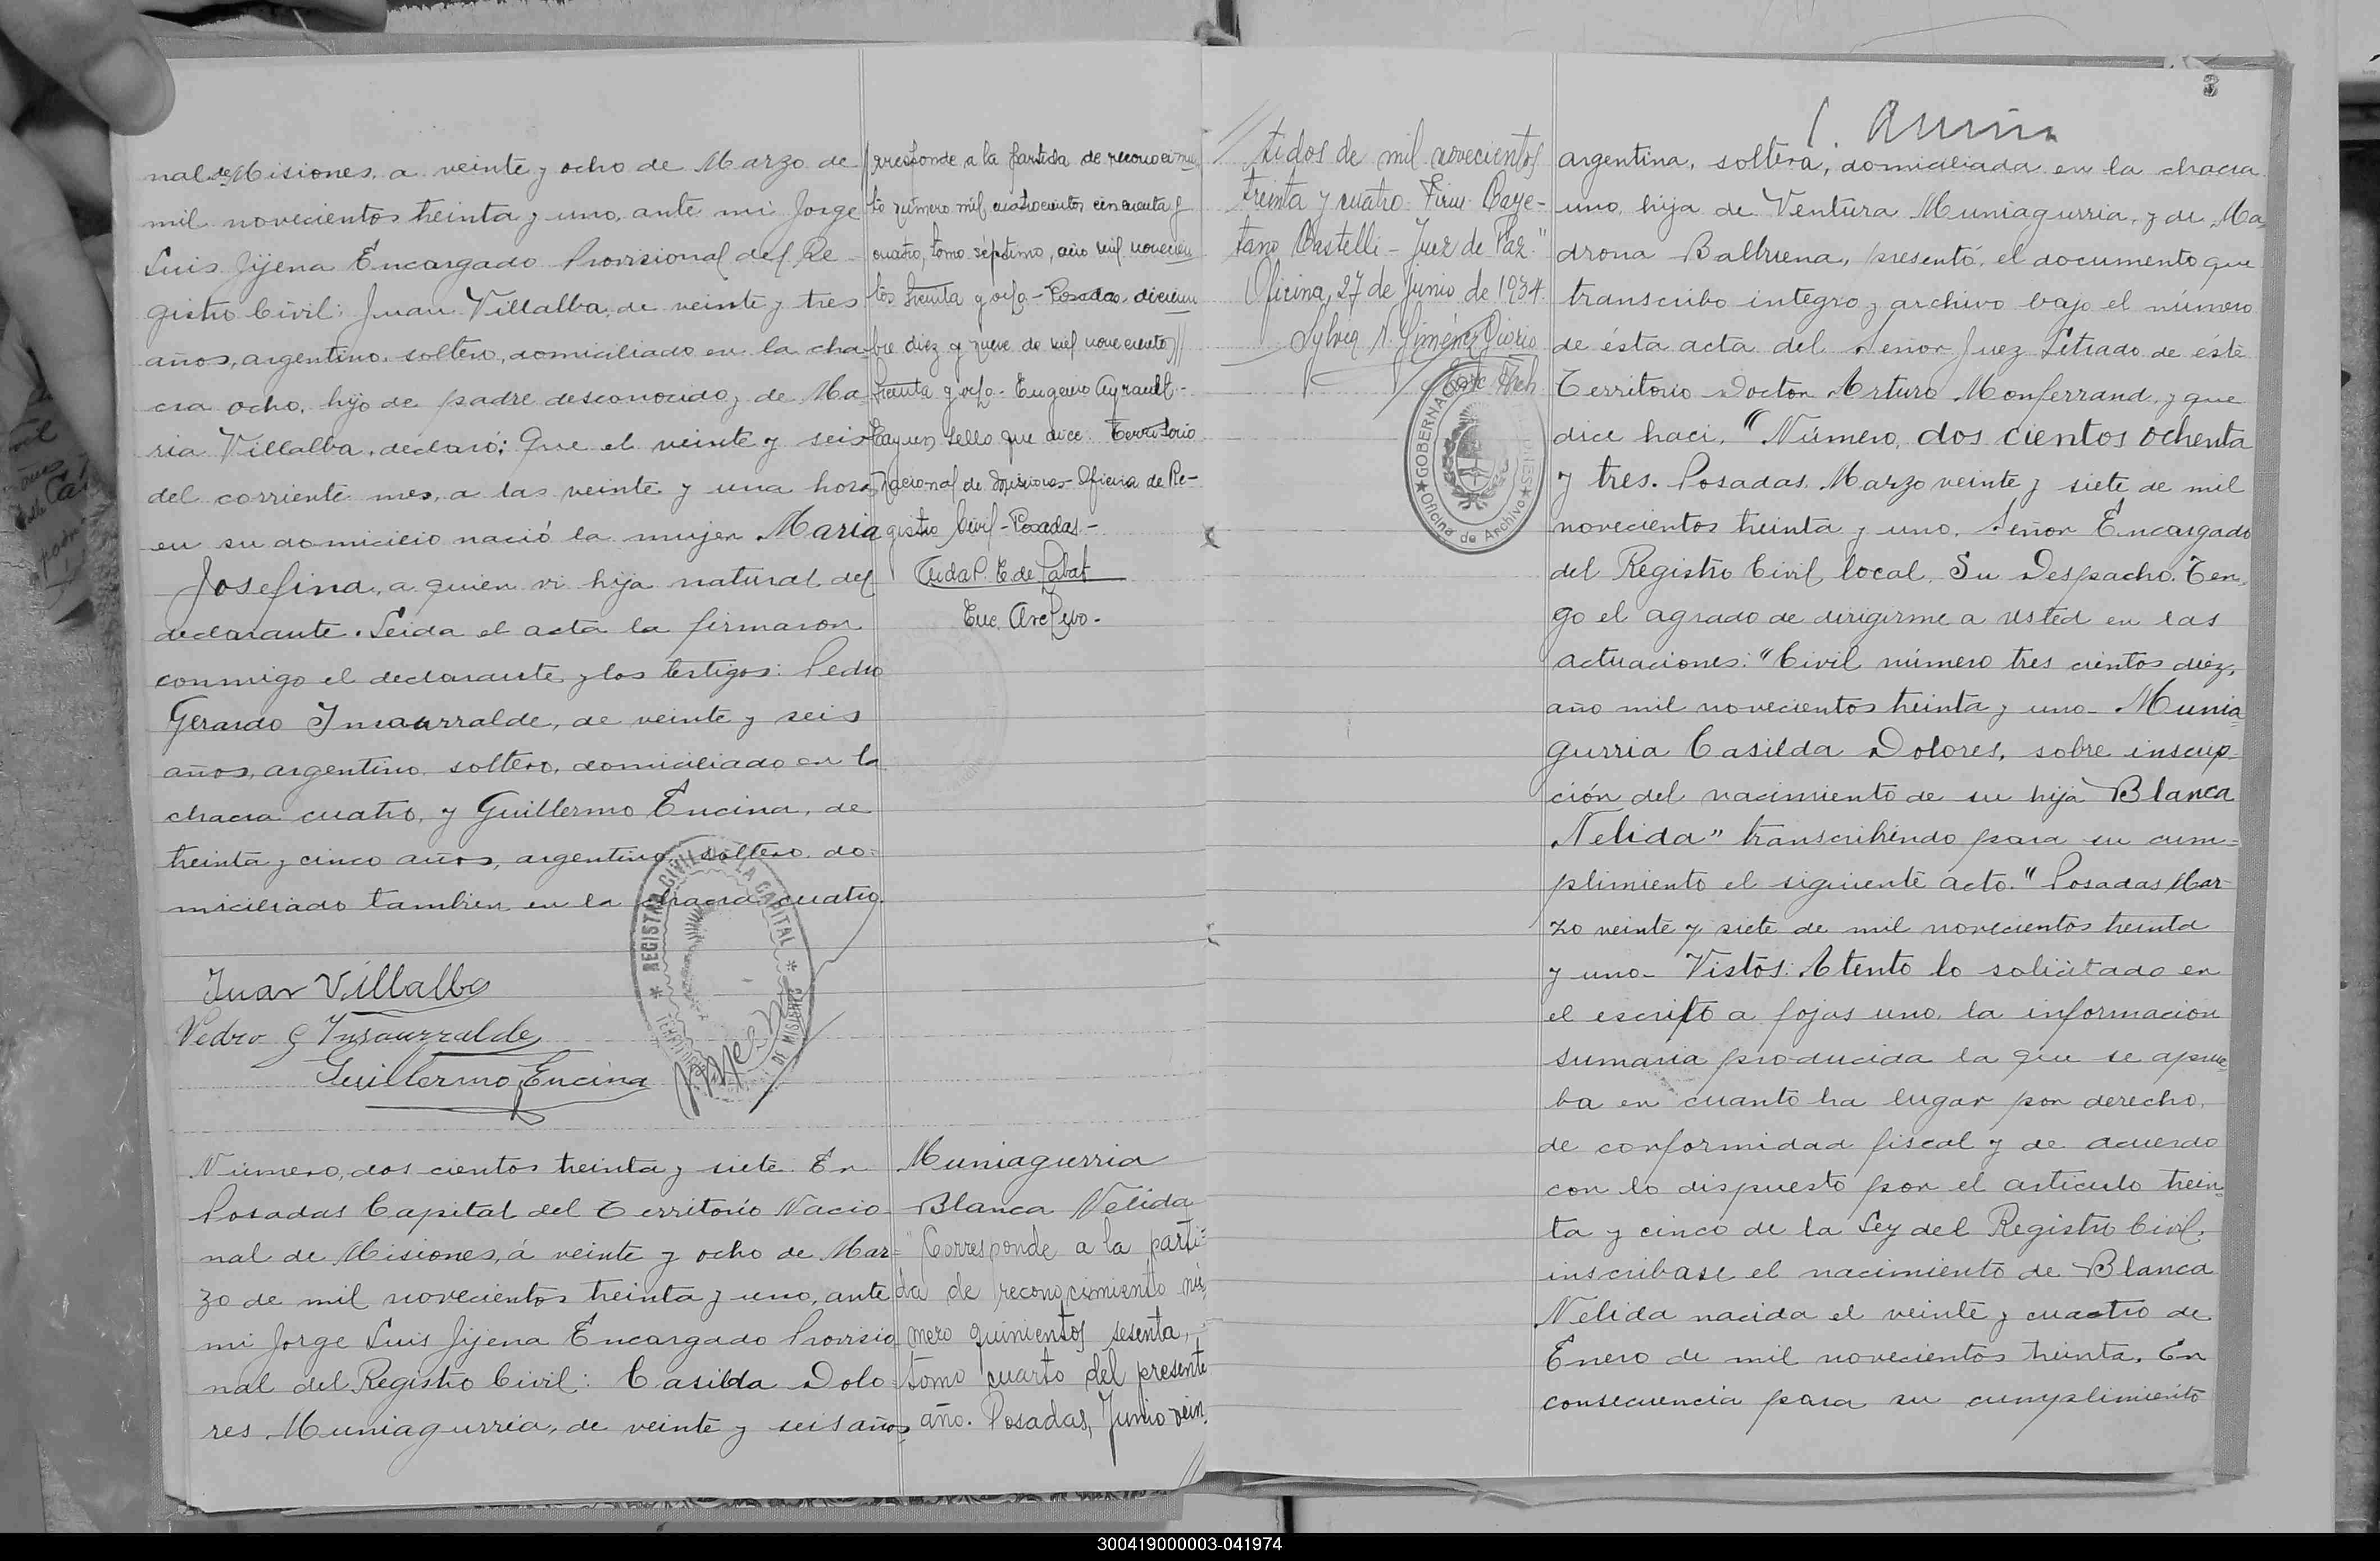 nal de Misiones, a veinte y ocho de Marzo de
mil novecientos treinta y uno, ante mi Jorge
Luis Jijena Encargado Provisional del Re-
gistro Civil: Juan Villalba, de veinte y tres
años, argentino, soltero, domiciliado en la cha-
cra ocho, hijo de padre desconocido y de Ma-
ria Villalba, declaró: Que el veinte y seis
del corriente mes, a las veinte y una hora
en su domicilio nació la mujer Maria
Josefina, a quien vi hija natural del
declarante. Leida el acta la firmaron
conmigo el declarante y los testigos: Pedro
Gerardo Insaurralde, de veinte y seis
años, argentino, soltero, domiciliado en la
chacra cuatro, y Guillermo Encina, de
treinta y cinco años, argentino, soltero, do-
miciliado tambien en la chacra cuatro.
Juan Villalba
Pedro G Insaurralde
Guillermo Encina
REGISTRO CIVIL DE LA CAPITAL
DE MISIONES
rresponde a la partida de reconocimien
to número mil cuatrocientos cincuenta y
cuatro, tomo séptimo, año mil novecien
tos treinta y ocho - Posadas, diciem
bre diez y nueve de mil novecientos //
treinta y ocho. Eugenio Ayrault -
hay un sello que dice: Territorio
Nacional de Misiones - Oficina de Re-
gistro Civil - Posadas -
Enc. Archivo -
Número, dos cientos treinta y siete. En
Posadas Capital del Territorio Nacio-
nal de Misiones, á veinte y ocho de Mar=
zo de mil novecientos treinta y uno, ante
mi Jorge Luis Jijena Encargado Provisio
nal del Registro Civil: Casilda Dolo=
res Muniagurria, de veinte y seis años,
Muniagurria
Blanca Nelida
"Corresponde a la parti=
da de reconocimiento nú,
mero quinientos sesenta,
tomo cuarto del presente
año. Posadas, Junio vein,
//
// tidos de mil novecientos
treinta y cuatro. Firm. Caye-
tano Castelli - Juez de Paz."
Oficina, 27 de Junio de 1934.
Sylvia N. Giménez Giorio
GOBERNACION
MISIONES
Oficina de Archivo
3
argentina, soltera, domiciliada en la chacra
uno, hija de Ventura Muniagurria, y de Ma,
drona Balbuena, presentó, el documento que
transcribo integro y archivo bajo el número
de ésta acta del Señor Juez Letrado de éste
Territorio Doctor Arturo Monferrand, y que
dice haci. "Número, dos cientos ochenta
y tres. Posadas, Marzo veinte y siete de mil
novecientos treinta y uno. Señor Encargado
del Registro Civil local, Su Despacho. Ten,
go el agrado de dirigirme a usted en las
actuaciones: "Civil número tres cientos diez,
año mil novecientos treinta y uno - Munia=
gurria Casilda Dolores, sobre inscrip-
ción del nacimiento de su hija Blanca
Nelida" transcribiendo para su cum=
plimiento el siguiente acto. "Posadas Mar-
zo veinte y siete de mil novecientos treinta
y uno - Vistos: Atento lo solicitado en
el escrito a fojas uno, la informacion
sumaria producida la que se aprue=
ba en cuanto ha lugar por derecho,
de conformidad fiscal y de acuerdo
con lo dispuesto por el articulo trein,
ta y cinco de la Ley del Registro Civil,
inscribase el nacimiento de Blanca
Nelida nacida el veinte y cuatro de
Enero de mil novecientos treinta. En
consecuencia para su cumplimiento
300419000003-041974